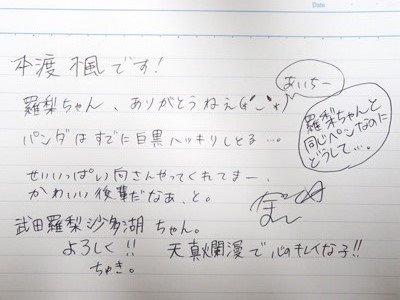 Date
本渡 楓です!
あいちー
羅梨ちゃん、ありがとうねえ(*´`*)
羅梨ちゃんと
同じペンなのに
どうして…。
パンダはすでに白黒ハッキリしとる…。
せいいっぱい向さんやってくれてまー、
かわいい後輩だなぁ、と。
武田羅梨沙多湖ちゃん。
よろしく!!
天真爛漫で心のキレイな子!!
ちゅき。